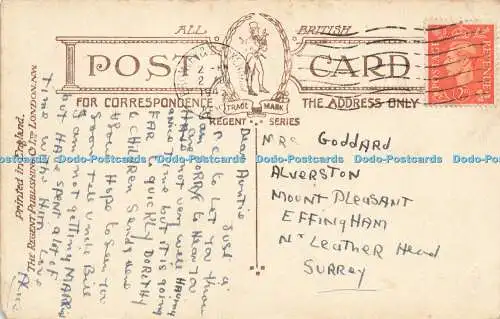 ALL BRITISH
POST CARD
FOR CORRESPONDENCE
THE ADDRESS ONLY
TRADE MARK
REGENT SERIES
POSTAGE
REVENUE
Printed in England.
THE REGENT PUBLISHING Co Ltd LONDON. NW.
Dear Auntie
Just a
to Let you Know
am SORRY to Hear You
are not very well Having
nice Time but it is going
FAR quickly DOROTHY
& CHILDREN Send Love
Hope to See You
Soon tell Uncle Bill
I am not getting MARRIED
but HAVE SPENT a lot of
Time with Him Love
MRS GODDARD
ALVERSTON
MOUNT PLEASANT
EFFINGHAM
Nr LEATHER Head
SURREY
Dodo-Postcards Dodo-Postcards Dodo-Postcards Dodo-Postcards Dodo-Postcards Dodo-Postcards